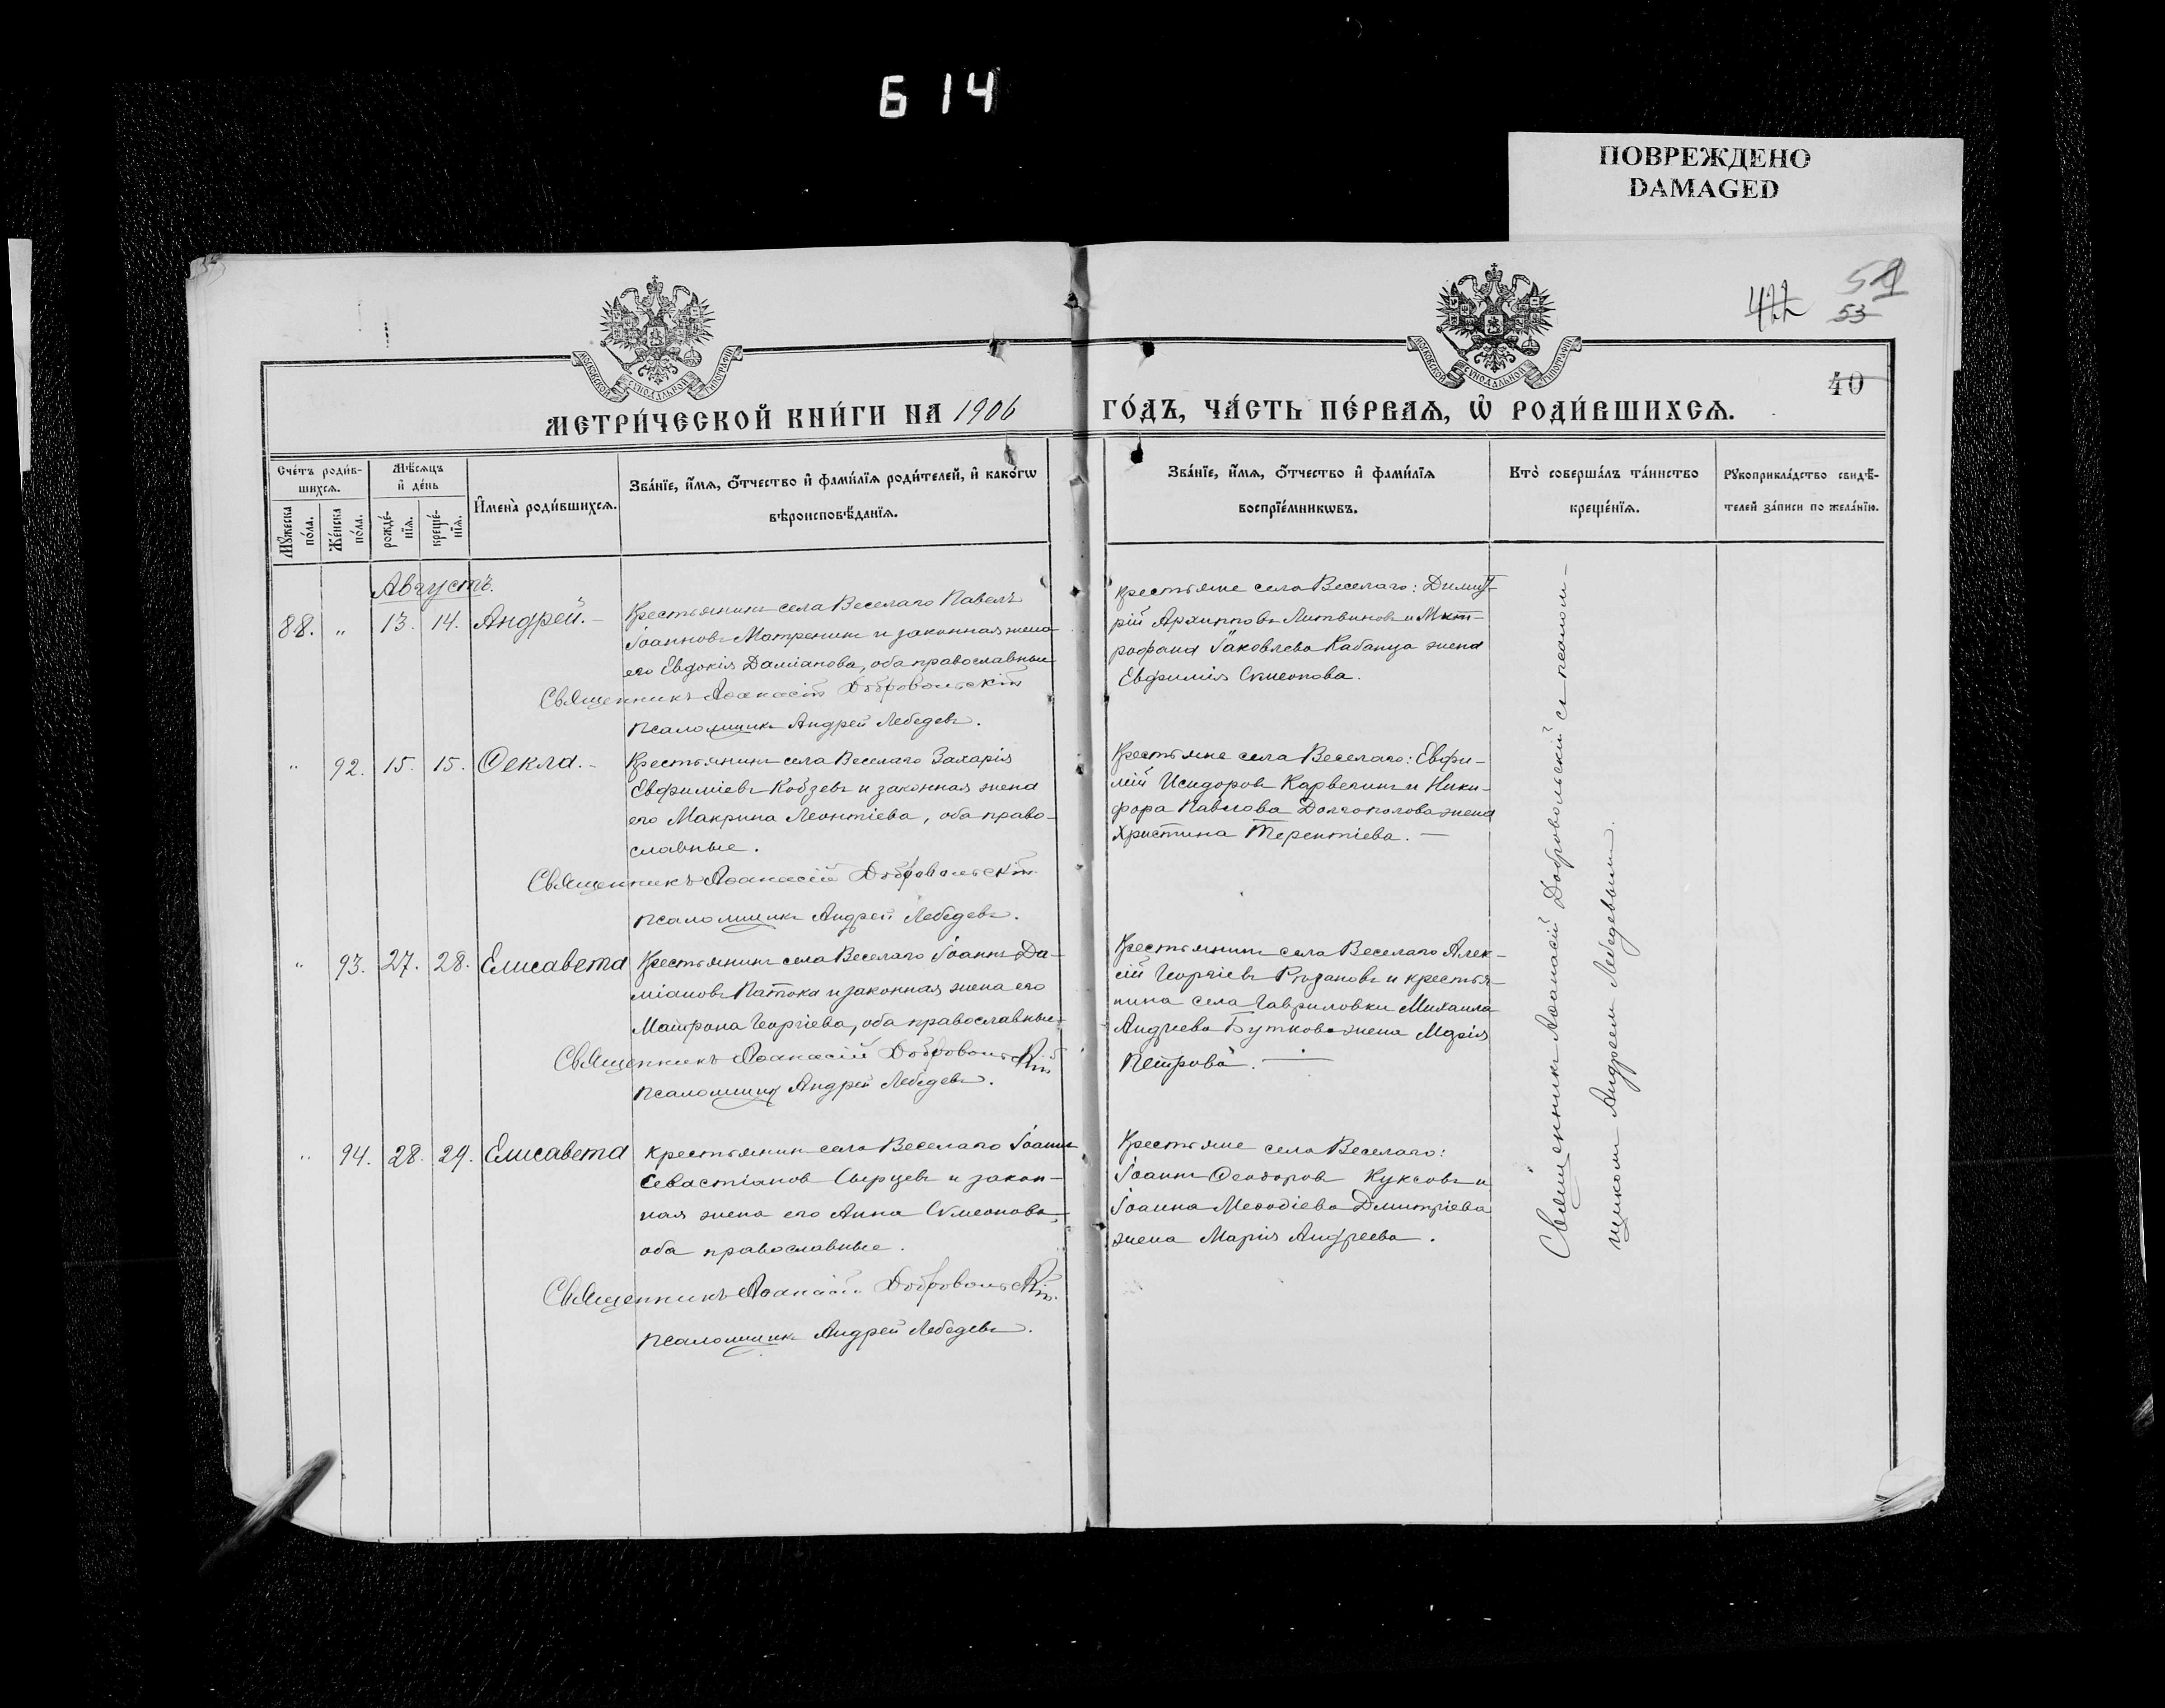 Б 14
ПОВРЕЖДЕНО
DAMAGED
51
53
40
МОСКОВСКОЙ СѴНОДАЛЬНОЙ ТИПОГРАФІИ
МОСКОВСКОЙ СѴНОДАЛЬНОЙ ТИПОГРАФІИ
МЕТРИ́ЧЕСКОЙ КНИ́ГИ НА 1906 ГО́ДЪ, ЧА́СТЬ ПЕ́РВАѦ, Ѡ҆ РОДИ́ВШИХСѦ.
Сче́тъ роди́в-
шихсѧ.
Мꙋ́жеска по́ла.
Же́нска по́ла.
Мѣ́сѧцъ
и҆ де́нь
рожде́-
нїѧ.
креще́-
нїѧ.
И҆мена̀ роди́вшихсѧ.
Зва́нїе, и҆́мѧ, ѻ҆́тчество и҆ фами́лїѧ роди́телей, и҆ како́гѡ
вѣроисповѣ́данїѧ.
Зва́нїе, и҆́мѧ, ѻ҆́тчество и҆ фами́лїѧ
воспрїе́мникѡвъ.
Кто̀ соверша́лъ та́инство
креще́нїѧ.
Рꙋкоприкла́дство свидѣ́-
телей за́писи по жела́нїю.
Августъ.
88. „ 13. 14. Андрей. –
Крестьянинъ села Веселаго Павелъ
Іоанновъ Матренинъ и законная жена
его Евдокія Даміанова, оба православные
Священникъ Аѳанасій Добровольскій
Псаломщикъ Андрей Лебедевъ.
Крестьяне села Веселаго: Димит-
рій Архиповъ Литвиновъ и Мит-
рофана Іаковлева Кабанца жена
Евфимія Симеонова.
„ 92. 15. 15. Ѳекла. –
Крестьянинъ села Веселаго Захарія
Евфиміевъ Кобзевъ и законная жена
его Макрина Леонтіева, оба право-
славные.
Священникъ Аѳанасій Добровольскій
Псаломщикъ Андрей Лебедевъ.
Крестьяне села Веселаго: Евфи-
мій Исидоровъ Карвелинъ и Ники-
фора Павлова Долгополова жена
Христина Терентіева. –
„ 93. 27. 28. Елисавета
Крестьянинъ села Веселаго Іоаннъ Да-
міановъ Патока и законная жена его
Матрона Георгіева, оба православные.
Священникъ Аѳанасій Добровольскій
Псаломщикъ Андрей Лебедевъ.
Крестьянинъ села Веселаго Алек-
сій Георгіевъ и крестья-
нина села Гавриловки Михаила
Андреева Буткова жена Марія
Петрова. –
„ 94. 28. 29. Елисавета
Крестьянинъ села Веселаго Іоаннъ
Севастіановъ Сырцевъ и закон-
ная жена его Анна Симеонова,
оба православные.
Священникъ Аѳанасій Добровольскій.
Псаломщикъ Андрей Лебедевъ.
Крестьяне села Веселаго:
Іоаннъ Ѳеодоровъ Куксовъ и
Іоанна Меѳодіева Дмитріева
жена Марія Андреева.
Священникъ Аѳанасій Добровольскій съ псалом-
щикомъ Андреемъ Лебедевымъ.